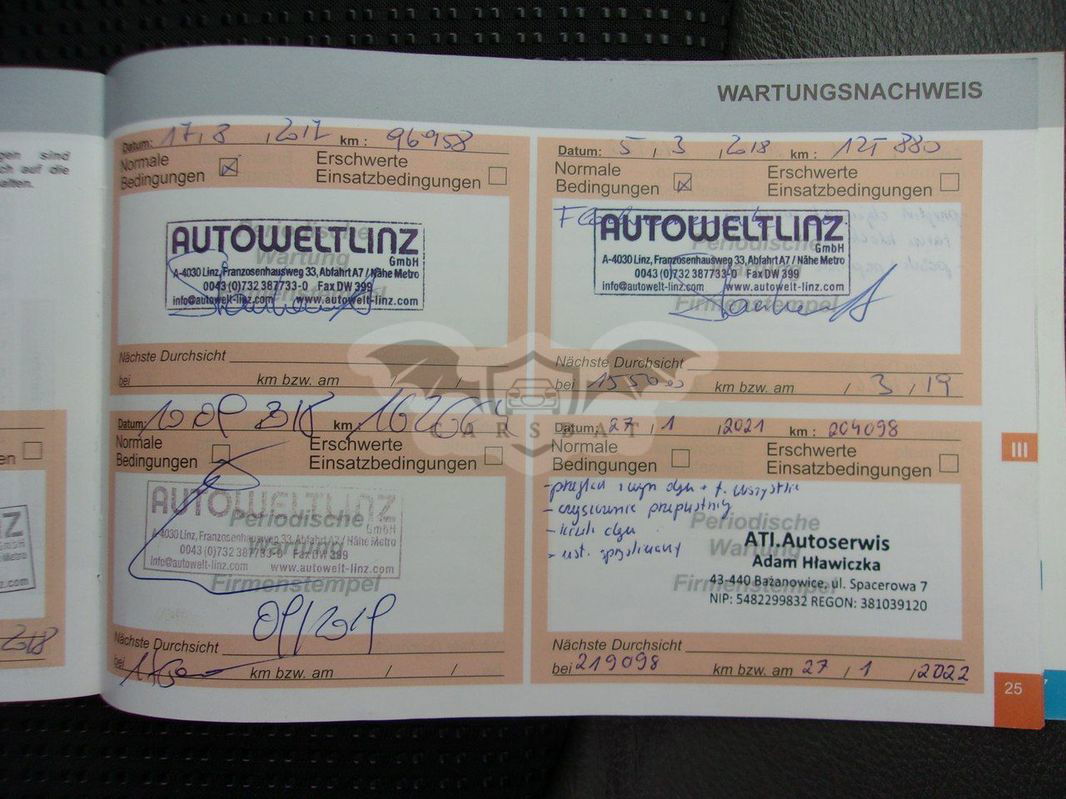 WARTUNGSNACHWEIS
gen sind
ch auf die
alten.
Datum: 17, 8 , 2017 km : 96958
Normale
Bedingungen
Erschwerte
Einsatzbedingungen
Periodische
Wartung
Firmenstempel
AUTOWELTLINZ
GmbH
A-4030 Linz, Franzosenhausweg 33, Abfahrt A7 / Nähe Metro
0043 (0)732 387733-0 Fax DW 399
info@autowelt-linz.com www.autowelt-linz.com
Nächste Durchsicht
bei km bzw. am / /
Datum: 5 / 3 , 2018 km :
Normale
Bedingungen
Erschwerte
Einsatzbedingungen
Periodische
Firmenstempel
AUTOWELTLINZ
GmbH
A-4030 Linz, Franzosenhausweg 33, Abfahrt A7 / Nähe Metro
0043 (0)732 387733-0 Fax DW 399
info@autowelt-linz.com www.autowelt-linz.com
Nächste Durchsicht
bei km bzw. am / 3 , 19
CARSBAT
Datum: km :
Normale
Bedingungen
Erschwerte
Einsatzbedingungen
Periodische
Wartung
Firmenstempel
AUTOWELTLINZ
GmbH
A-4030 Linz, Franzosenhausweg 33, Abfahrt A7 / Nähe Metro
0043 (0)732 387733-0 Fax DW 399
info@autowelt-linz.com www.autowelt-linz.com
09/2019
Nächste Durchsicht
bei km bzw. am / /
Datum: 27 / 1 , 2021 km : 204098
Normale
Bedingungen
Erschwerte
Einsatzbedingungen
- czyszczenie przepustnicy
Periodische
Wartung
Firmenstempel
ATI.Autoserwis
Adam Hławiczka
43-440 Bażanowice, ul. Spacerowa 7
NIP: 5482299832 REGON: 381039120
Nächste Durchsicht
bei 219098 km bzw. am 27 / 1 , 2022
III
25
en
2018